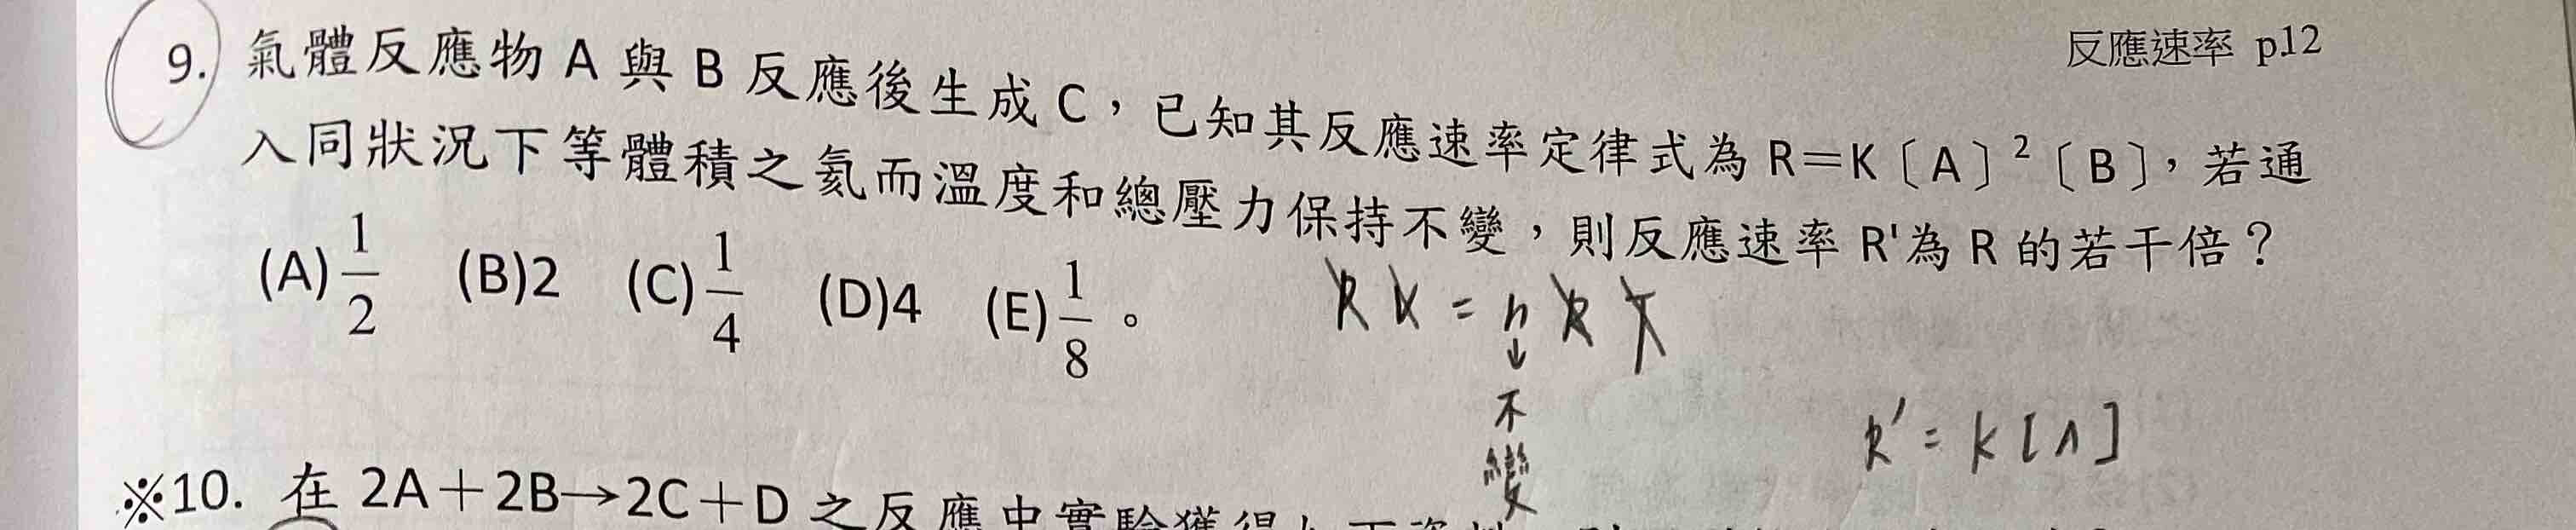 反應速率 p.12
9. 氣體反應物 A 與 B 反應後生成 C，已知其反應速率定律式為 R＝K〔A〕²〔B〕，若通
入同狀況下等體積之氦而溫度和總壓力保持不變，則反應速率 R'為 R 的若干倍？
(A) 1/2 (B)2 (C) 1/4 (D)4 (E) 1/8 。
= n R T
↓
不
變
R' = K [A]
※10. 在 2A＋2B→2C＋D 之反應中實驗獲得